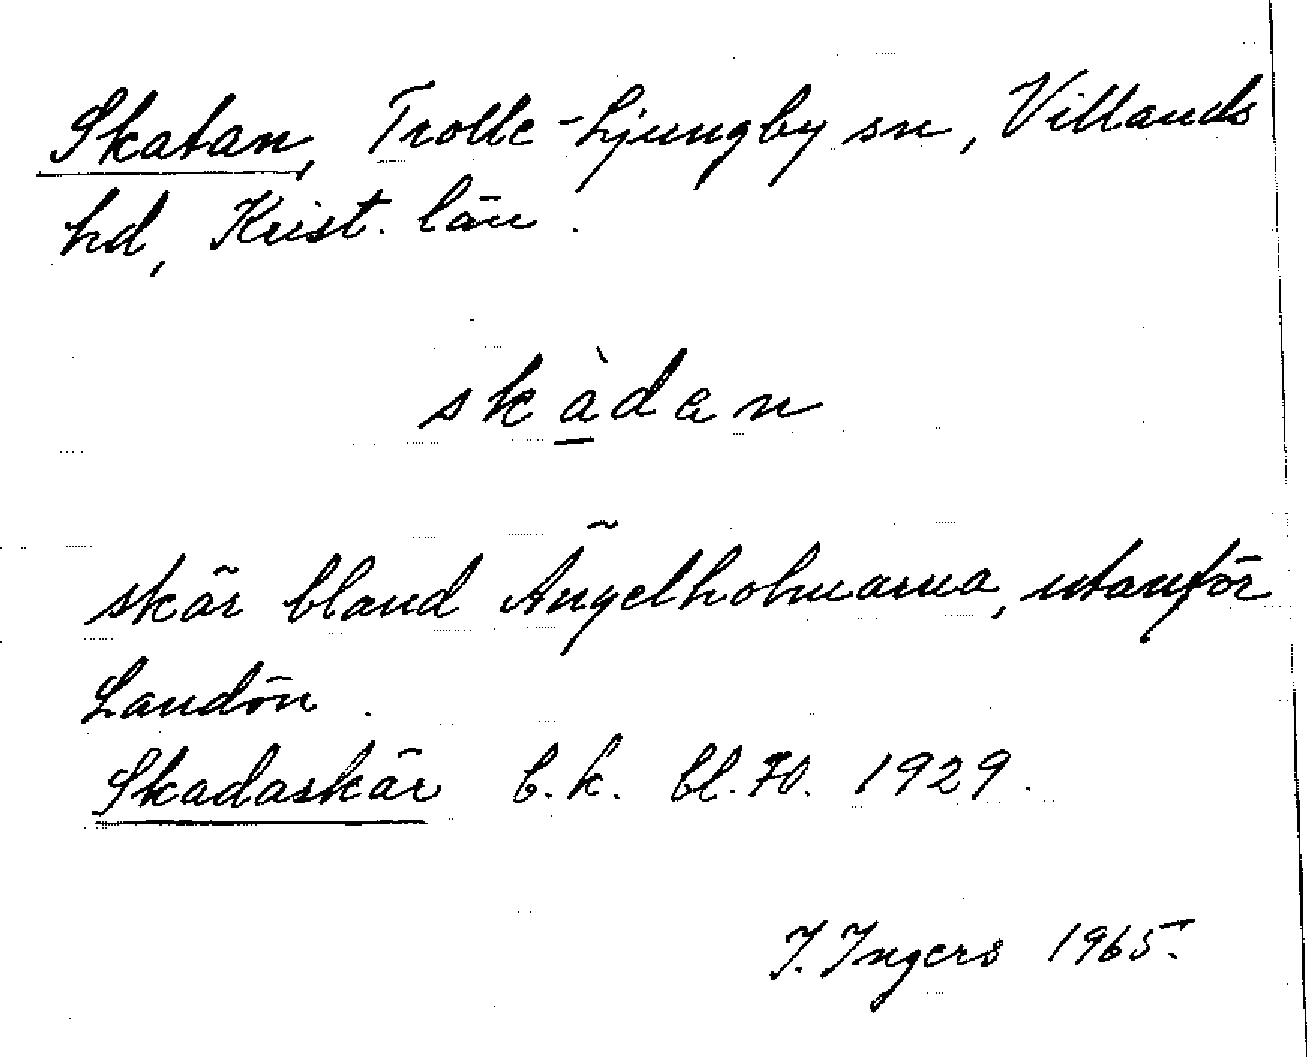 Skatan, Trolle-Ljungby sn, Villands
hd, Krist. län.
skàdan
skär bland Ängelholmarna, utanför
Landön.
Skadaskär b.k. bl. 70. 1929.
I. Ingers 1965.